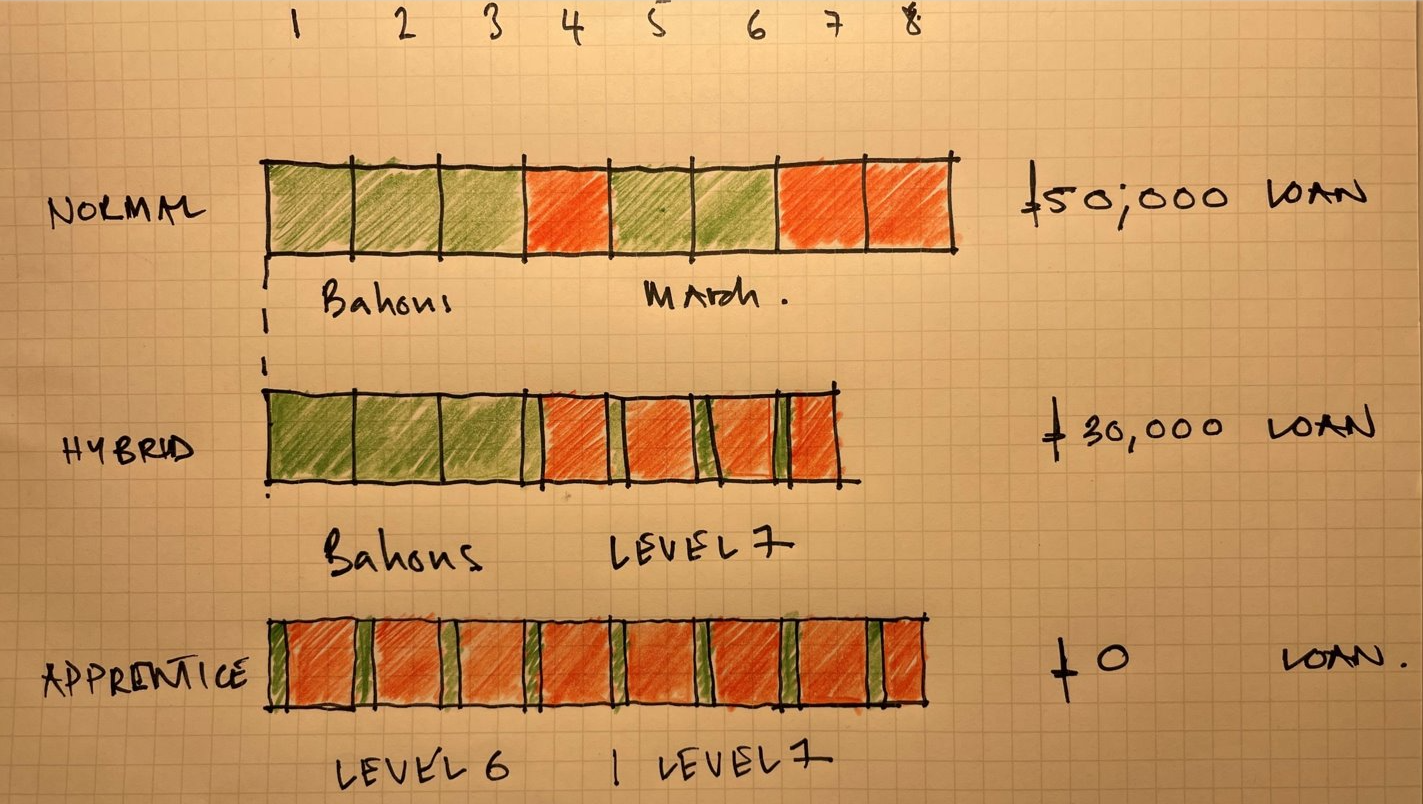 1 2 3 4 5 6 7 8
NORMAL £50,000 LOAN
Bahons March.
HYBRID £30,000 LOAN
Bahons LEVEL 7
APPRENTICE £0 LOAN.
LEVEL 6 | LEVEL 7